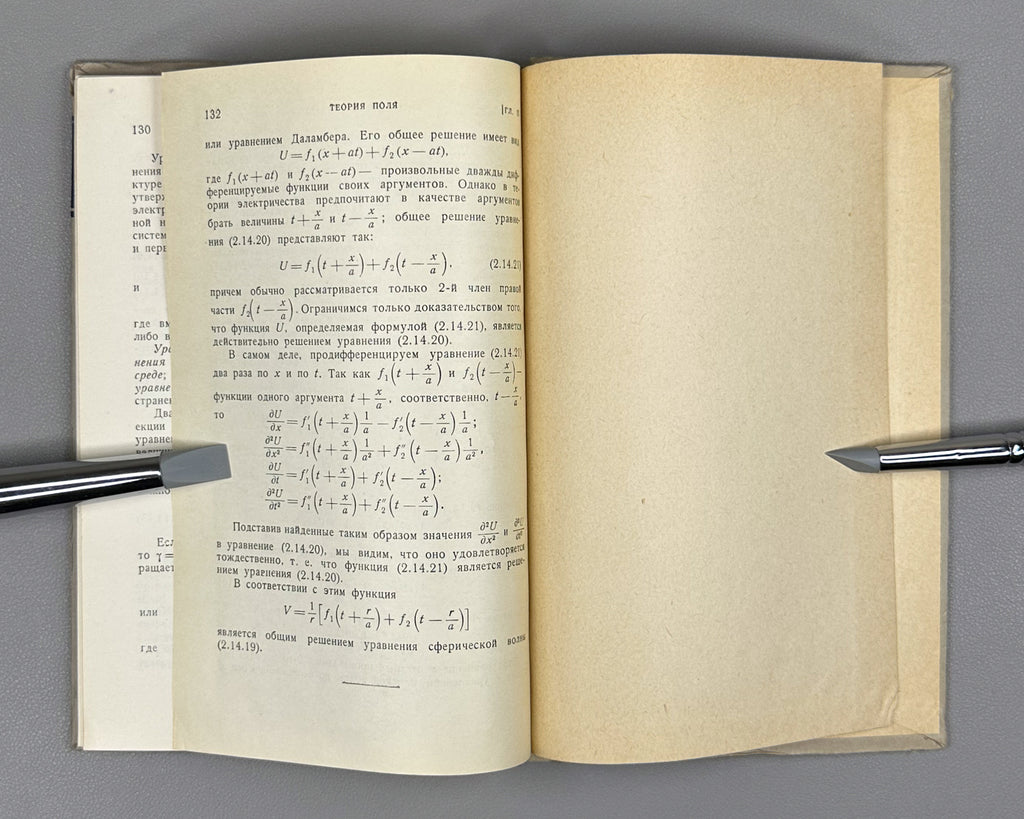 130
Ур
нения
ктуре
утвер
электр
ной н
систем
и перв
и
где вм
либо в
Ура
нения
среде;
уравне
стране
Два
екции
уравне
Есл
то γ=
ращает
или
где
132 ТЕОРИЯ ПОЛЯ [гл.
или уравнением Даламбера. Его общее решение имеет вид
U = f₁(x + at) + f₂(x − at),
где f₁(x + at) и f₂(x − at) — произвольные дважды диф-
ференцируемые функции своих аргументов. Однако в те-
ории электричества предпочитают в качестве аргументов
брать величины t + x/a и t − x/a; общее решение уравне-
ния (2.14.20) представляют так:
U = f₁(t + x/a) + f₂(t − x/a), (2.14.21)
причем обычно рассматривается только 2-й член правой
части f₂(t − x/a). Ограничимся только доказательством того,
что функция U, определяемая формулой (2.14.21), является
действительно решением уравнения (2.14.20).
В самом деле, продифференцируем уравнение (2.14.21)
два раза по x и по t. Так как f₁(t + x/a) и f₂(t − x/a)–
функции одного аргумента t + x/a, соответственно, t − x/a,
то ∂U/∂x = f₁′(t + x/a) 1/a − f₂′(t − x/a) 1/a;
∂²U/∂x² = f₁″(t + x/a) 1/a² + f₂″(t − x/a) 1/a²,
∂U/∂t = f₁′(t + x/a) + f₂′(t − x/a);
∂²U/∂t² = f₁″(t + x/a) + f₂″(t − x/a).
Подставив найденные таким образом значения ∂²U/∂x² и ∂²U/∂t²
в уравнение (2.14.20), мы видим, что оно удовлетворяется
тождественно, т. е. что функция (2.14.21) является реше-
нием уравнения (2.14.20).
В соответствии с этим функция
V = 1/r [f₁(t + r/a) + f₂(t − r/a)]
является общим решением уравнения сферической волны
(2.14.19).